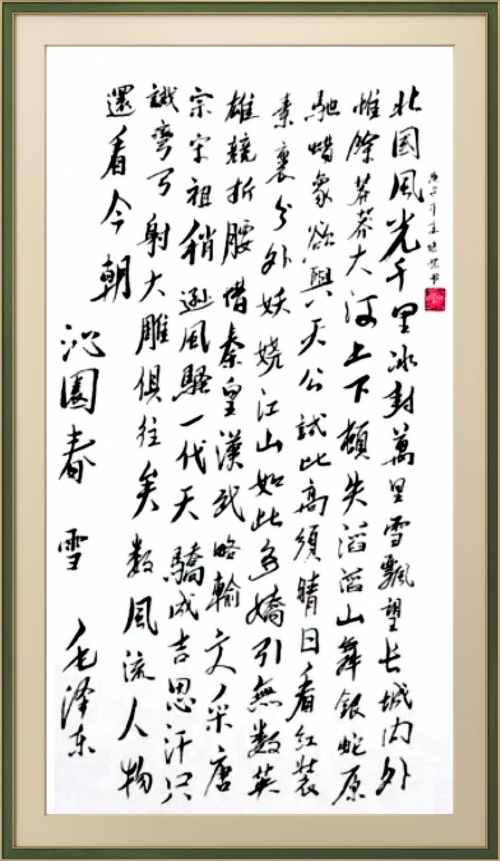 庚子年夏
北国风光千里冰封萬里雪飄望长城内外
惟餘莽莽大河上下頓失滔滔山舞銀蛇原
馳蜡象欲與天公試比高須晴日看紅裝
素裹分外妖娆江山如此多嬌引無数英
雄競折腰惜秦皇漢武略輸文采唐
宗宋祖稍遜風騷一代天驕成吉思汗只
識彎弓射大雕俱往矣数風流人物
還看今朝
沁園春 雪 毛泽东